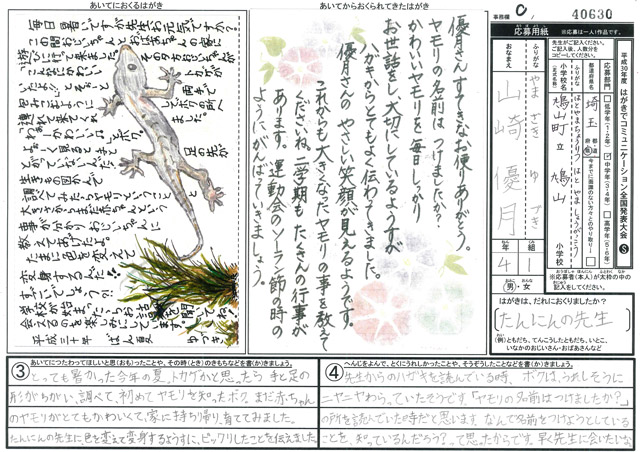 あいてにおくるはがき
毎日暑いですが先生お元気ですか？
この間おじいちゃんとおばあちゃんの家に
遊びに行って来ました。
両手で
ました。
足の先が
よーく見ると
生きもの図かんで
調べてみたらヤモリということ
教えてあげたよ。
たまに色を変えて
変身するんだ!!
すごいでしょう?!
学校が始まったら
会えるのを楽しみにしています。
平成三十年 ばん夏 ゆづき
あいてからおくられてきたはがき
優月さん すてきなお便りありがとう。
ヤモリの名前は つけましたか？
かわいいヤモリを毎日しっかり
お世話をし、大切にしているようすが
ハガキからとてもよく伝わってきました。
優月さんの やさしい笑顔が見えるようです。
これからも大きくなったヤモリの事を教えて
くださいね。二学期も たくさんの行事が
あります。運動会のソーラン節の時の
ようにがんばっていきましょう。
事務欄
C
40630
応募用紙
※応募は一人1作品です。
先生がご記入ください。
ご記入後、人数分を
コピーしてください。
平成30年度 はがきでコミュニケーション全国発表大会 S
応募部門
低学年(1・2年)
中学年(3・4年)
高学年(5・6年)
都道府県名
埼玉
都道府県
ふりがな
はとやまちょうりつ はとやましょうがっこう
小学校名
鳩山町立 鳩山
小学校
ふりがな
やま ざき ゆ づき
おなまえ
山崎 優月
年
4
組
1
男・女
※応募者(本人)が太枠の中の
記入をしてください。
はがきは、だれにおくりましたか？
たんにんの先生
(例)ともだち、てんこうしたともだち、いとこ、
いなかのおじいさん・おばあさんなど
③ あいてにつたわってほしいと思(おも)ったことや、その時(とき)のきもちなどを書(か)きましょう。
とっても暑かった今年の夏、トカゲかと思ったら手と足の
形がちがい、調べて、初めてヤモリを知ったボク。まだ赤ちゃん
のヤモリがとてもかわいくて、家に持ち帰り、育ててみました。
たんにんの先生に色を変えて変身するようすに、ビックリしたことを伝えました。
④ へんじをよんで、とくにうれしかったことや、そうぞうしたことなどを書(か)きましょう。
先生からのハガキを読んでいる時、ボクは、うれしそうに
ニヤニヤわらっていたそうです。「ヤモリの名前はつけましたか？」
の所を読んでいた時だと思います。なんで名前をつけようとしている
ことを、知っているんだろう？って思ったからです。早く先生に会いたいな